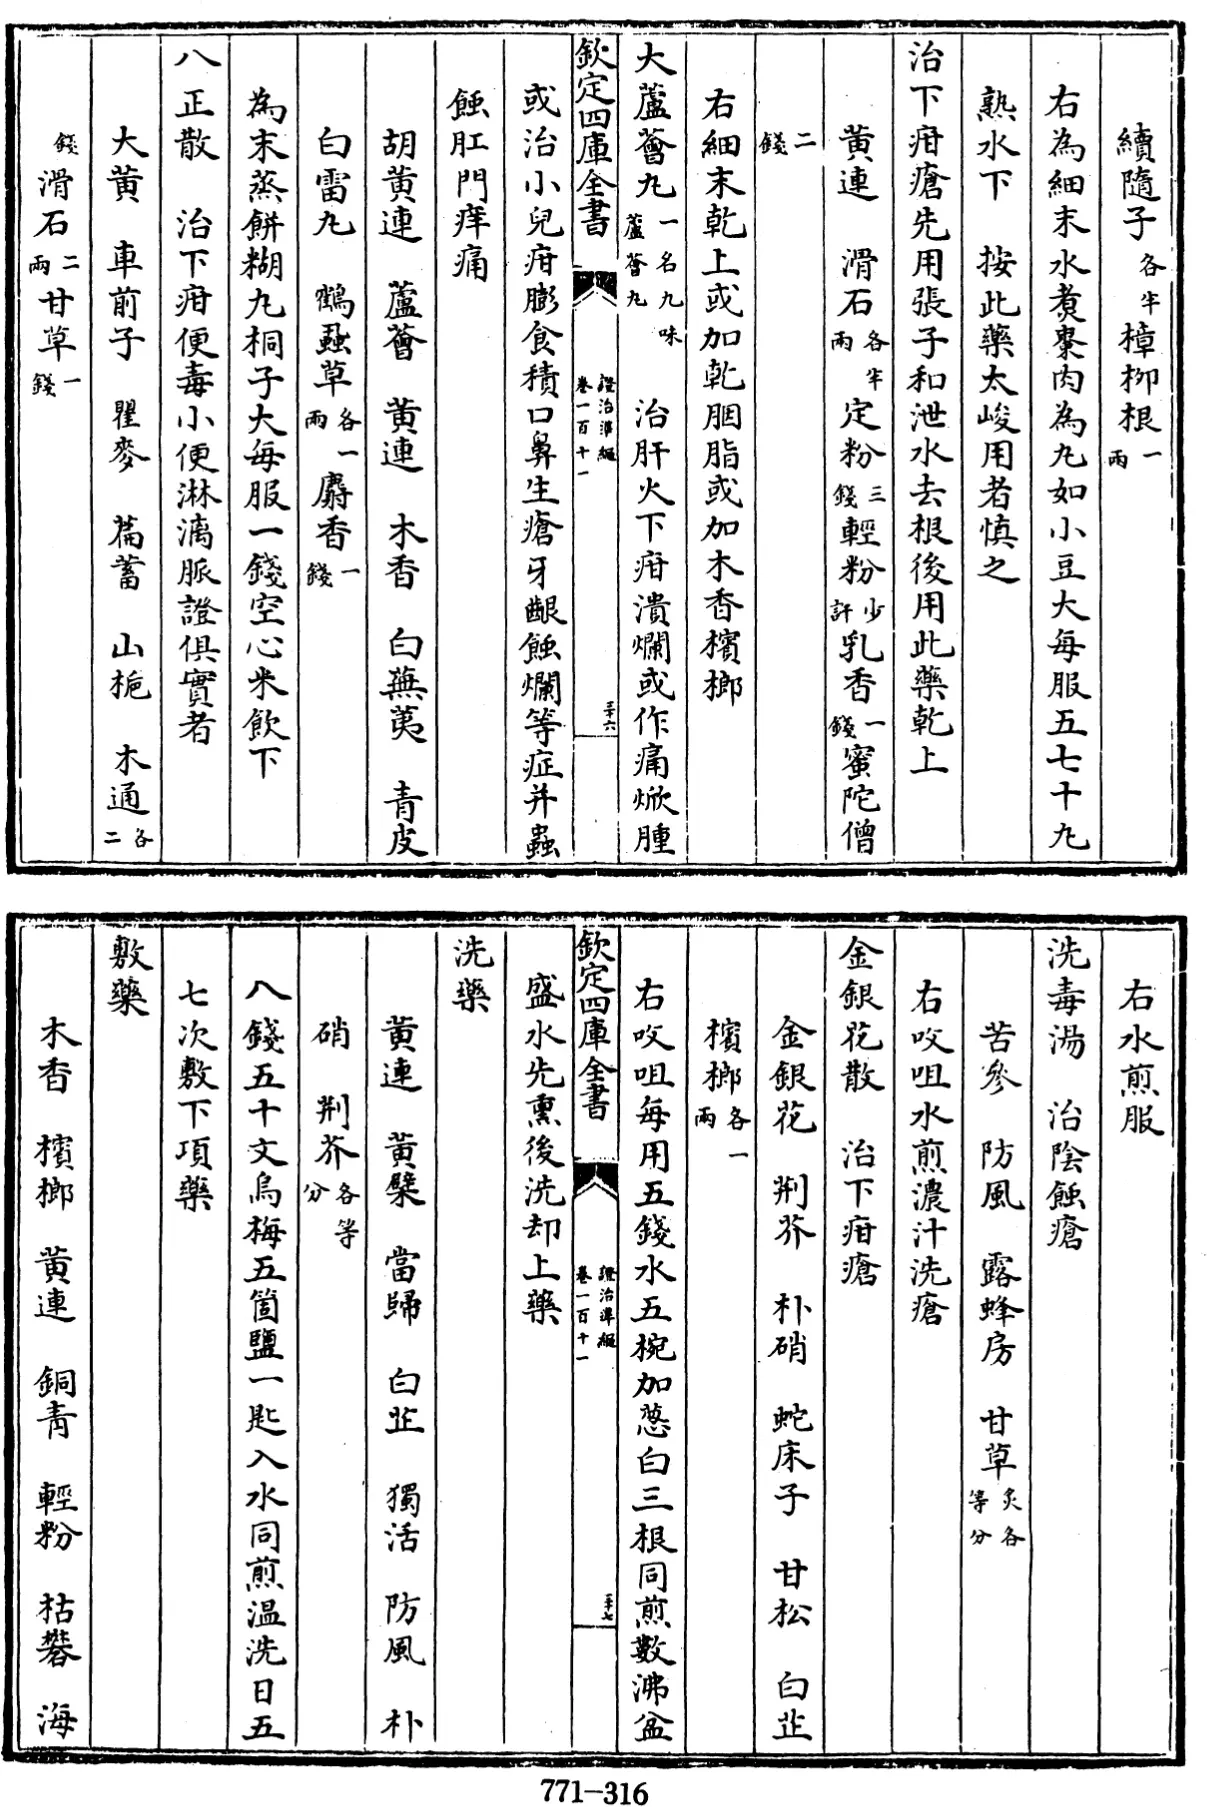 續隨子各半樟柳根一兩
右為細末水煮棗肉為丸如小豆大每服五七十丸
熟水下　按此藥太峻用者慎之
治下疳瘡先用張子和泄水去根後用此藥乾上
黃連　滑石各半兩定粉三錢輕粉少許乳香一錢蜜陀僧
二錢
右細末乾上或加乾胭脂或加木香檳榔
大蘆薈丸一名九味蘆薈丸　治肝火下疳潰爛或作痛焮腫
欽定四庫全書　證治準繩卷一百十一　三十六
或治小兒疳膨食積口鼻生瘡牙齦蝕爛等症并蟲
蝕肛門痒痛
胡黃連　蘆薈　黃連　木香　白蕪荑　青皮
白雷丸　鶴蝨草各一兩麝香一錢
為末蒸餅糊丸桐子大每服一錢空心米飲下
八正散　治下疳便毒小便淋漓脈證俱實者
大黃　車前子　瞿麥　萹蓄　山梔　木通各二
錢滑石二兩甘草一錢
右水煎服
洗毒湯　治陰蝕瘡
苦參　防風　露蜂房　甘草炙各等分
右㕮咀水煎濃汁洗瘡
金銀花散　治下疳瘡
金銀花　荆芥　朴硝　蛇床子　甘松　白芷
檳榔各一兩
右㕮咀每用五錢水五椀加蔥白三根同煎數沸盆
欽定四庫全書　證治準繩卷一百十一　三十七
盛水先熏後洗却上藥
洗藥
黃連　黃檗　當歸　白芷　獨活　防風　朴
硝　荆芥各等分
八錢五十文烏梅五箇鹽一匙入水同煎温洗日五
七次敷下項藥
敷藥
木香　檳榔　黃連　銅青　輕粉　枯礬　海
771-316